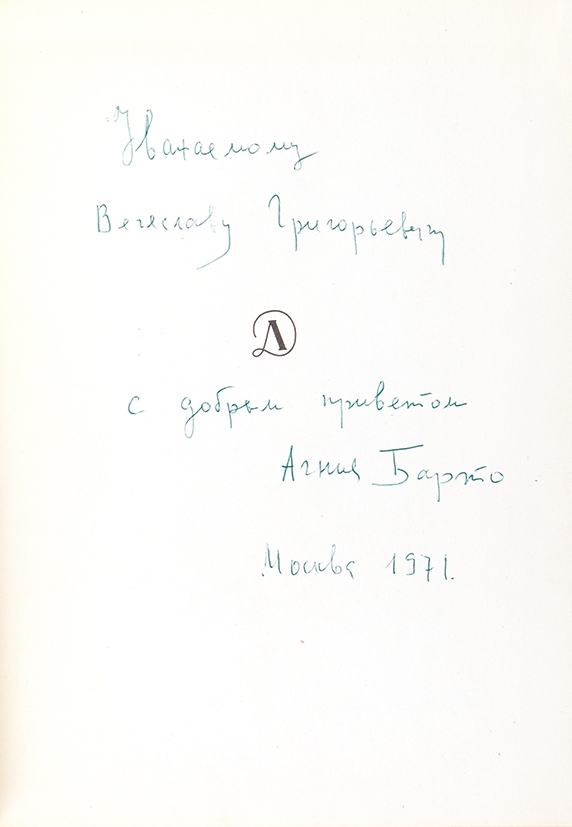 Уважаемому
Вячеславу Григорьевичу
Д
с добрым приветом
Агния Барто
Москва 1971.